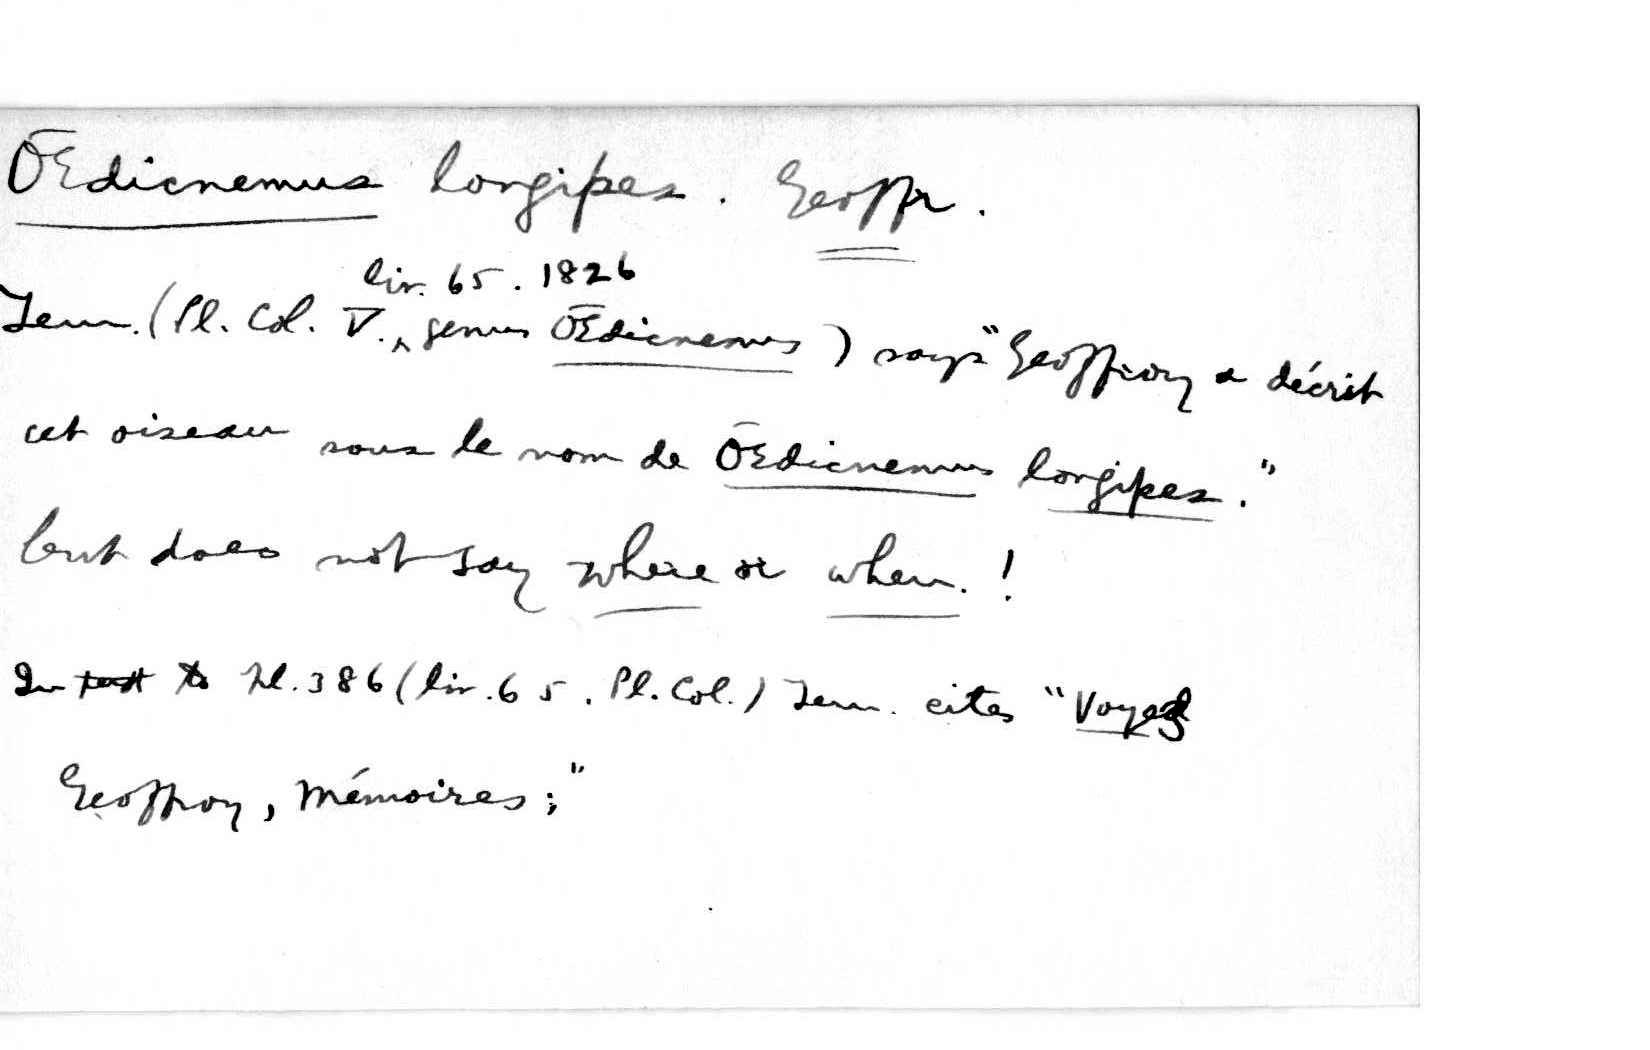 Œdicnemus longipes. Geoffr.
liv. 65. 1826
Tem. (Pl. Col. V. ‸ genus Œdicnemus) says "Geoffroy a décrit
cet oiseau sous le nom de Œdicnemus longipes."
but does not say where or when.!
In text to pl. 386 (liv. 65. Pl. Col.) Tem. cites "Voyez
Geoffroy, Mémoires;"